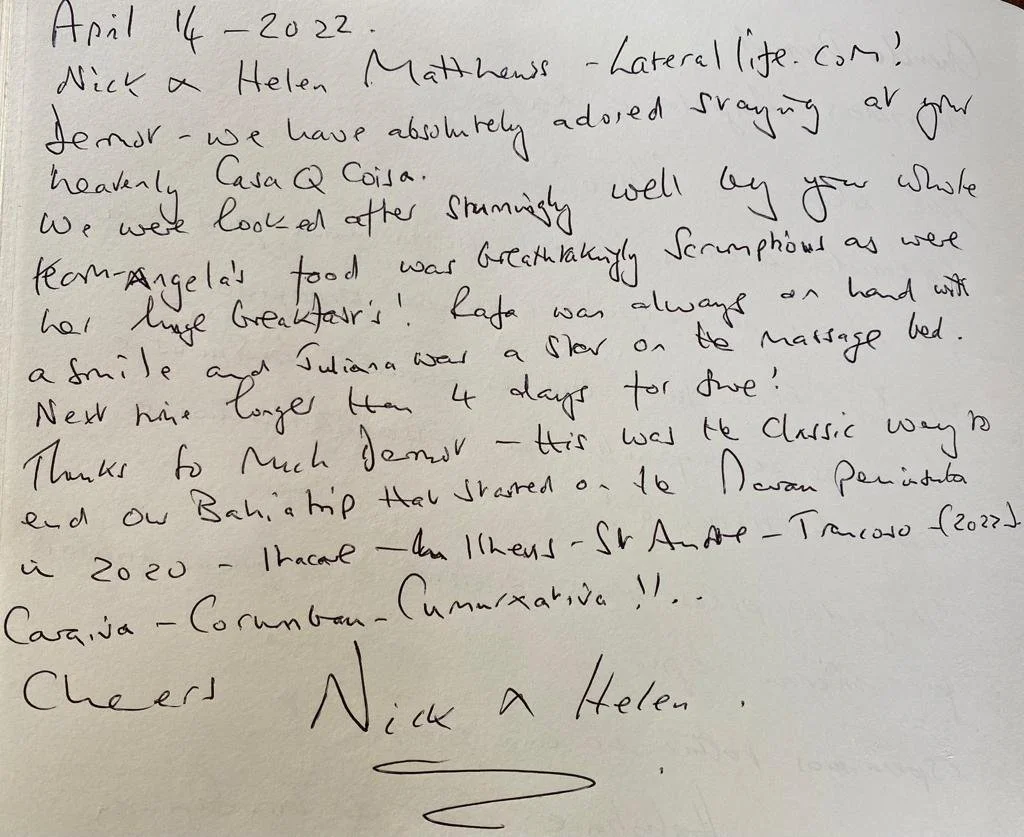 April 14 - 2022.
Nick & Helen Matthews - Laterallife.com!
Dermot - we have absolutely adored staying at your
heavenly Casa Q Coisa.
We were looked after stunningly well by your whole
team - Angela's food was breathtakingly scrumptious as were
her huge breakfast's! Rafa was always on hand with
a smile and Juliana was a star on the massage bed.
Next time longer than 4 days for sure!
Thanks so much Dermot - this was the classic way to
end our Bahia trip that started on the Peninsula
in 2020 - Itacare - Ilheus - St Andre - Trancoso - (2022)
Caraiva - Corumbau - Cumuruxativa !!..
Cheers Nick & Helen.